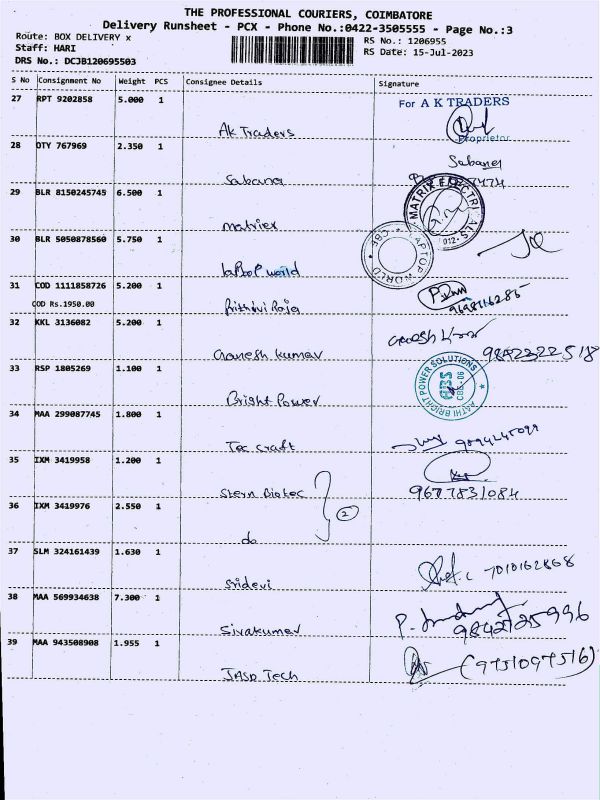 THE PROFESSIONAL COURIERS, COIMBATORE
Delivery Runsheet - PCX - Phone No.:0422-3505555 - Page No.:3
Route: BOX DELIVERY x
RS No.: 1206955
Staff: HARI
RS Date: 15-Jul-2023
DRS No.: DCJB120695503
S No Consignment No Weight PCS Consignee Details Signature
27 RPT 9202858 5.000 1
For A K TRADERS
Ak Traders
Proprietor
28 OTY 767969 2.350 1
Sabana
Sabana
29 BLR 8150245745 6.500 1
MATRIX ELECTRICALS
012
matriex
30 BLR 5050878560 5.750 1
LAPTOP WORLD
CBE
laptop world
31 COD 1111858726 5.200 1
COD Rs.1950.00
Prithivi Raja
32 KKL 3136082 5.200 1
Ganesh kumar
9842322518
33 RSP 1805269 1.100 1
AATHI BRIGHT POWER SOLUTIONS
Bright Power
34 MAA 299087745 1.800 1
Tec craft
35 IXM 3419958 1.200 1
Stern Biotec
9677831084
36 IXM 3419976 2.550 1
2
do
37 SLM 324161439 1.630 1
7010162868
Sridevi
38 MAA 569934638 7.300 1
Sivakumar
9842725996
39 MAA 943508908 1.955 1
(9751097516)
JASP Tech